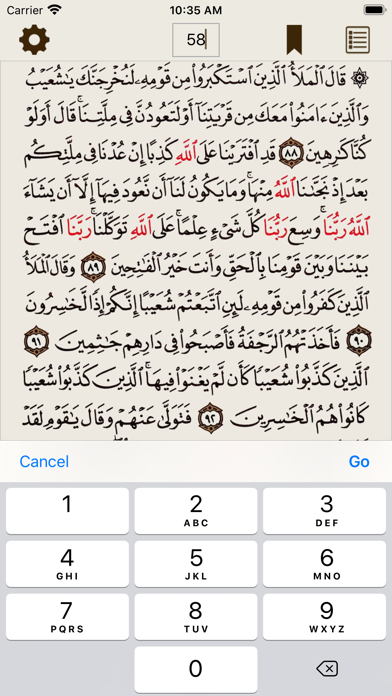 Carrier 10:35 AM
58
۞ قَالَ ٱلْمَلَأُ ٱلَّذِينَ ٱسْتَكْبَرُوا۟ مِن قَوْمِهِۦ لَنُخْرِجَنَّكَ يَٰشُعَيْبُ
وَٱلَّذِينَ ءَامَنُوا۟ مَعَكَ مِن قَرْيَتِنَآ أَوْ لَتَعُودُنَّ فِى مِلَّتِنَا ۚ قَالَ أَوَلَوْ
كُنَّا كَٰرِهِينَ ٨٨ قَدِ ٱفْتَرَيْنَا عَلَى ٱللَّهِ كَذِبًا إِنْ عُدْنَا فِى مِلَّتِكُم
بَعْدَ إِذْ نَجَّىٰنَا ٱللَّهُ مِنْهَا ۚ وَمَا يَكُونُ لَنَآ أَن نَّعُودَ فِيهَآ إِلَّآ أَن يَشَآءَ
ٱللَّهُ رَبُّنَا ۚ وَسِعَ رَبُّنَا كُلَّ شَىْءٍ عِلْمًا ۚ عَلَى ٱللَّهِ تَوَكَّلْنَا ۚ رَبَّنَا ٱفْتَحْ
بَيْنَنَا وَبَيْنَ قَوْمِنَا بِٱلْحَقِّ وَأَنتَ خَيْرُ ٱلْفَٰتِحِينَ ٨٩ وَقَالَ ٱلْمَلَأُ
ٱلَّذِينَ كَفَرُوا۟ مِن قَوْمِهِۦ لَئِنِ ٱتَّبَعْتُمْ شُعَيْبًا إِنَّكُمْ إِذًا لَّخَٰسِرُونَ
٩٠ فَأَخَذَتْهُمُ ٱلرَّجْفَةُ فَأَصْبَحُوا۟ فِى دَارِهِمْ جَٰثِمِينَ ٩١
ٱلَّذِينَ كَذَّبُوا۟ شُعَيْبًا كَأَن لَّمْ يَغْنَوْا۟ فِيهَا ۚ ٱلَّذِينَ كَذَّبُوا۟ شُعَيْبًا
كَانُوا۟ هُمُ ٱلْخَٰسِرِينَ ٩٢ فَتَوَلَّىٰ عَنْهُمْ وَقَالَ يَٰقَوْمِ لَقَدْ
Cancel Go
1 2 3
ABC DEF
4 5 6
GHI JKL MNO
7 8 9
PQRS TUV WXYZ
0